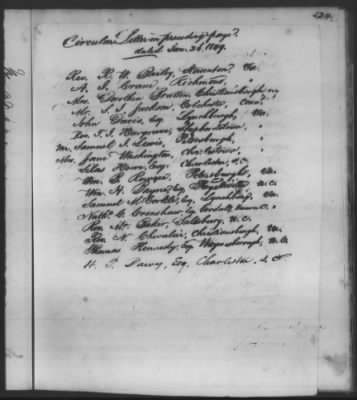 524.
Circular Letter in preceding page.
dated Jan. 26, 1849.
Rev. R. W. Baily, Staunton, Va.
A. J. Crane Richmond, "
Mrs. Dorothea Christiansburg
Mr. S. J. Jackson, Colchester, Conn.
John Davis, Esq. Lynchburg, Va.
Rev. J. J. Hargrove, Shepherdstown, "
Mr. Samuel J. Lewis, Petersburg, "
Mrs. Jane Washington, Charlestown, "
Silas Howe, Esq. Charleston, S.C.
Wm. E. Petersburg, Va.
Wm. H. Esq. Fayetteville N.C.
Samuel McCorkle, Esq. Lynchburg Va.
Nathl. C. Crenshaw, Esq. Hanover C. "
Rev. Mr. Baker, Salisbury, N.C.
N. Chevalier, Christiansburg, Va.
Thomas Kennedy, Esq. Waynesborough, N.C.
H. P. Esq. Charleston, S.C.